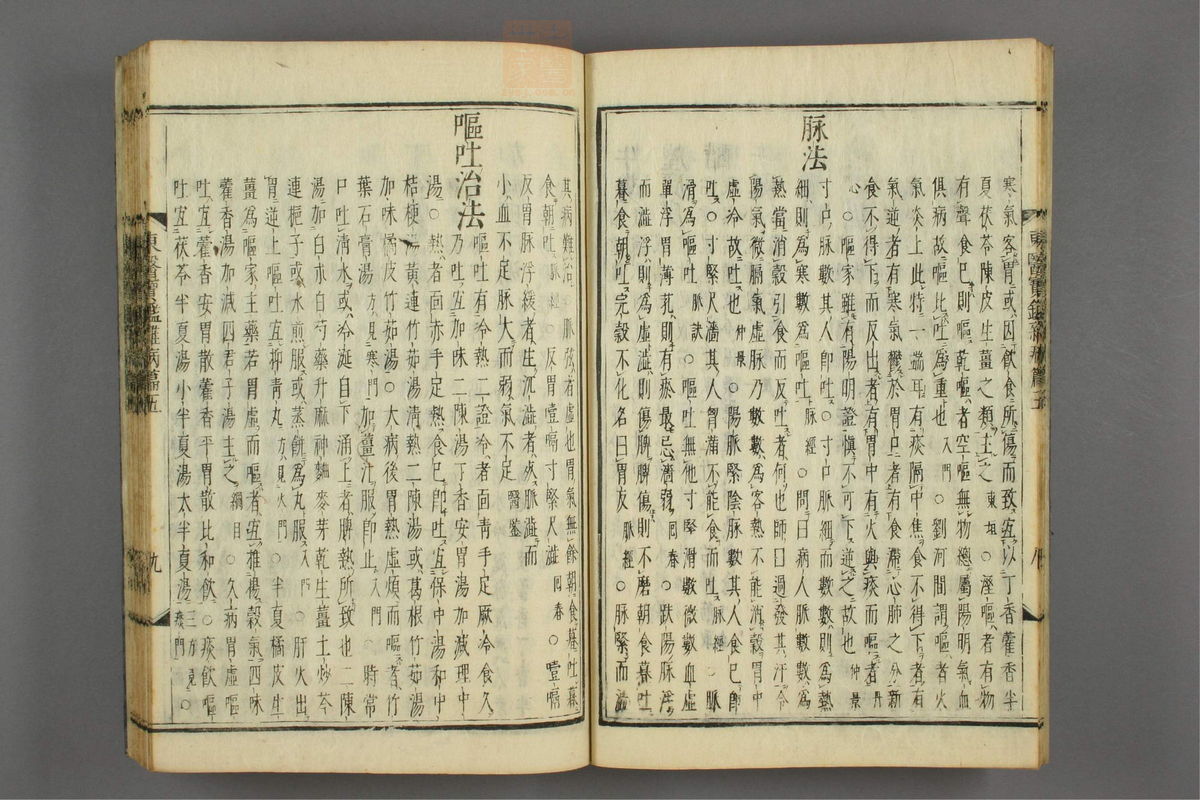 寒氣客胃或因飮食所傷而致宜以丁香藿香半
夏茯苓陳皮生薑之類主之 東垣 ○嘔者有物
有聲食已則嘔乾嘔者空嘔無物總屬陽明氣血
俱病故嘔比吐爲重也 入門 ○劉河間謂嘔者火
氣炎上此特一端耳有痰隔中焦食不得下者有
氣逆者有寒氣鬱於胃口者有食滯心肺之分新
食不得下而反出者有胃中有火與痰而嘔者 丹
心 ○嘔家雖有陽明證愼不可下逆之故也 仲景
脉法
寸口脉數其人卽吐○寸口脉細而數數則爲熱
細則爲寒數爲嘔吐 脉經 ○問曰病人脉數數爲
熱當消穀引食而反吐者何也師曰過發其汗令
陽氣微膈氣虛脉乃數數爲客熱不能消穀胃中
虛冷故吐也 仲景 ○陽脉緊陰脉數其人食已卽
吐○寸緊尺濇其人胷滿不能食而吐 脉經 ○脉
滑爲嘔吐 脉訣 ○嘔吐無他寸緊滑數微數血虛
單浮胃薄芤則有瘀最忌濇弱 囘春 ○趺陽脉浮
而濇浮則爲虛濇則傷脾脾傷則不磨朝食暮吐
暮食朝吐完穀不化名曰胃反 脉經 ○脉緊而濇
東醫寶鑑雜病篇五
其病難治○脉弦者虛也胃氣無餘朝食暮吐暮
食朝吐 脉經 ○反胃噎嗝寸緊尺濇 囘春 ○噎嗝
反胃脉浮緩者生沉濇者死脉濇而
小血不足脉大而弱氣不足 醫鑑
嘔吐治法
嘔吐有冷熱二證冷者面靑手足厥冷食久
乃吐宜加味二陳湯丁香安胃湯加減理中
湯○熱者面赤手足熱食已卽吐宜保中湯和中
桔梗湯黃連竹茹湯淸熱二陳湯或葛根竹茹湯
加味橘皮竹茹湯○大病後胃熱虛煩而嘔者竹
葉石膏湯 方見寒門 加薑汁服卽止 入門 ○時常
口吐淸水或冷涎自下涌上者脾熱所致也二陳
湯加白朮白芍藥升麻神麴麥芽乾生薑土炒芩
連梔子或水煎服或蒸餠爲丸服 入門 ○肝火出
胃逆上嘔吐宜抑靑丸 方見火門 ○半夏橘皮生
薑爲嘔家主藥若胃虛而嘔者宜推揚穀氣四味
藿香湯加減四君子湯主之 綱目 ○久病胃虛嘔
吐宜藿香安胃散藿香平胃散比和飮○痰飮嘔
吐宜茯苓半夏湯小半夏湯大半夏湯 三方見痰門 ○
東醫寶鑑雜病篇五
九